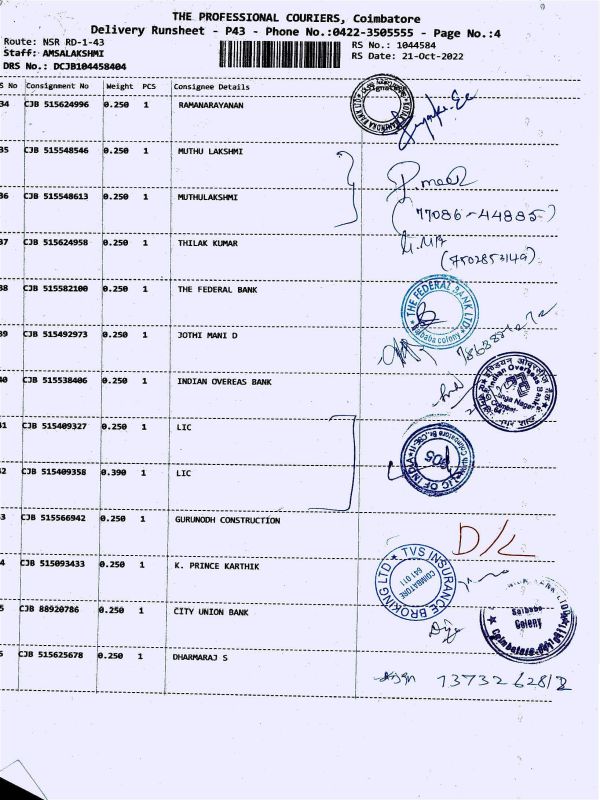 THE PROFESSIONAL COURIERS, Coimbatore
Delivery Runsheet - P43 - Phone No.:0422-3505555 - Page No.:4
Route: NSR RD-1-43
RS No.: 1044584
Staff: AMSALAKSHMI
RS Date: 21-Oct-2022
DRS No.: DCJB104458404
S No Consignment No Weight PCS Consignee Details
34 CJB 515624996 0.250 1 RAMANARAYANAN
35 CJB 515548546 0.250 1 MUTHU LAKSHMI
36 CJB 515548613 0.250 1 MUTHULAKSHMI
(77086-44885)
37 CJB 515624958 0.250 1 THILAK KUMAR
(7502853149)
38 CJB 515582100 0.250 1 THE FEDERAL BANK
THE FEDERAL BANK LTD
Saibaba colony
39 CJB 515492973 0.250 1 JOTHI MANI D
40 CJB 515538406 0.250 1 INDIAN OVEREAS BANK
Indian Overseas Bank
41 CJB 515409327 0.250 1 LIC
LIC OF INDIA
42 CJB 515409358 0.390 1 LIC
43 CJB 515566942 0.250 1 GURUNODH CONSTRUCTION
D/L
44 CJB 515093433 0.250 1 K. PRINCE KARTHIK
TVS INSURANCE BROKING LTD
COIMBATORE
641 011
45 CJB 88920786 0.250 1 CITY UNION BANK
Saibaba
Colony
46 CJB 515625678 0.250 1 DHARMARAJ S